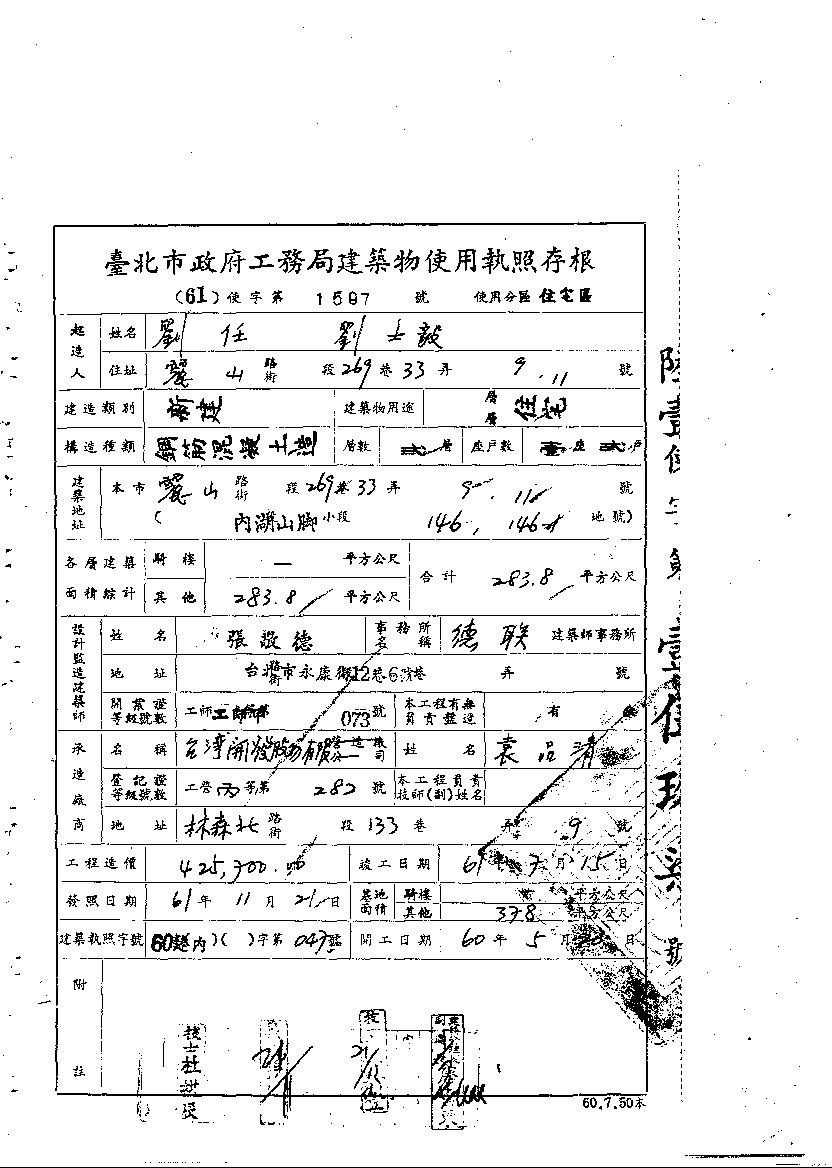 臺北市政府工務局建築物使用執照存根
(61)使字第 1597 號 使用分區 住宅區
起造人 姓名 劉任 劉士毅
住址 麗山 路街 段 269 巷 33 弄 9.11 號
建造類別 新建 建築物用途 層層 住宅
構造種類 鋼筋混凝土造 層數 貳 層 座戶數 壹 座 貳 戶
建築地址 本市 麗山 路街 段 269 巷 33 弄 9.11 號
( 內湖山腳 小段 146, 146-1 地號)
各層建築面積綜計 騎樓 — 平方公尺 合計 283.8 平方公尺
其他 283.8 平方公尺
設計監造建築師 姓名 張敬德 事務所名稱 德联 建築師事務所
地址 台北市永康街12巷6號 弄 號
開業證等級號數 工師 073號 本工程有無負責監造 有
承造廠商 名稱 台灣開發股份有限 營造廠公司 姓名 袁品清
登記證等級號數 工營丙等第 282 號 本工程負責技師(副)姓名
地址 林森北 路街 段 133 巷 弄 9 號
工程造價 425,700.00 竣工日期 61年7月15日
發照日期 61年11月21日 基地面積 騎樓 平方公尺
其他 378 平方公尺
建築執照字號 60建(內)( )字第047號 開工日期 60年5月20日
附註
技士杜
60.7.50本
陸壹使字第壹伍玖柒號